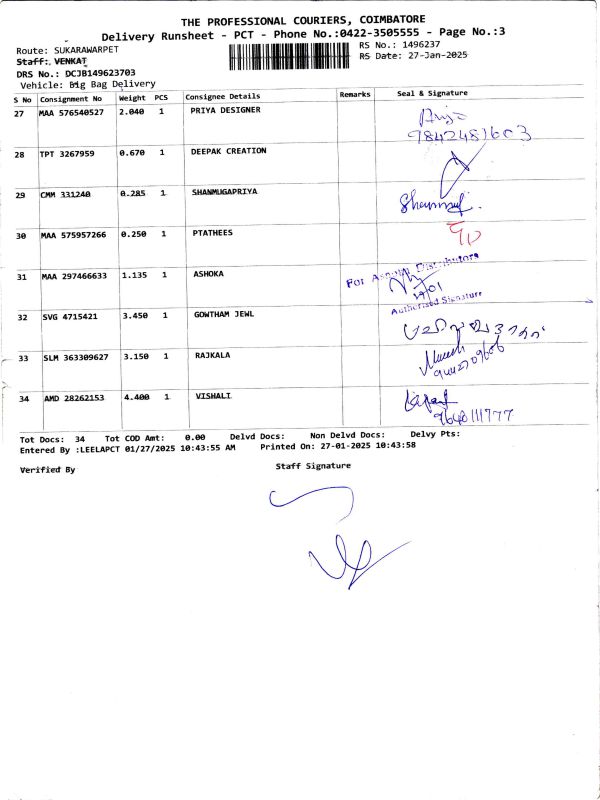 THE PROFESSIONAL COURIERS, COIMBATORE
Delivery Runsheet - PCT - Phone No.:0422-3505555 - Page No.:3
Route: SUKARAWARPET
RS No.: 1496237
Staff: VENKAT
RS Date: 27-Jan-2025
DRS No.: DCJB149623703
Vehicle: Big Bag Delivery
S No Consignment No Weight PCS Consignee Details Remarks Seal & Signature
27 MAA 576540527 2.040 1 PRIYA DESIGNER
9842481603
28 TPT 3267959 0.670 1 DEEPAK CREATION
29 CMM 331240 0.285 1 SHANMUGAPRIYA
30 MAA 575957266 0.250 1 PTATHEES
31 MAA 297466633 1.135 1 ASHOKA
For Distributors
Authorised Signature
32 SVG 4715421 3.450 1 GOWTHAM JEWL
33 SLM 363309627 3.150 1 RAJKALA
34 AMD 28262153 4.400 1 VISHALI
9640111777
Tot Docs: 34 Tot COD Amt: 0.00 Delvd Docs: Non Delvd Docs: Delvy Pts:
Entered By :LEELAPCT 01/27/2025 10:43:55 AM Printed On: 27-01-2025 10:43:58
Verified By
Staff Signature